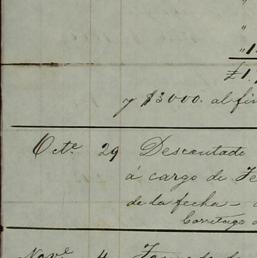 "
"
£1,
y $3000. al fin
Octe. 29 Descontado
á cargo de Fe
de la fecha -
Corretage
Nove 4